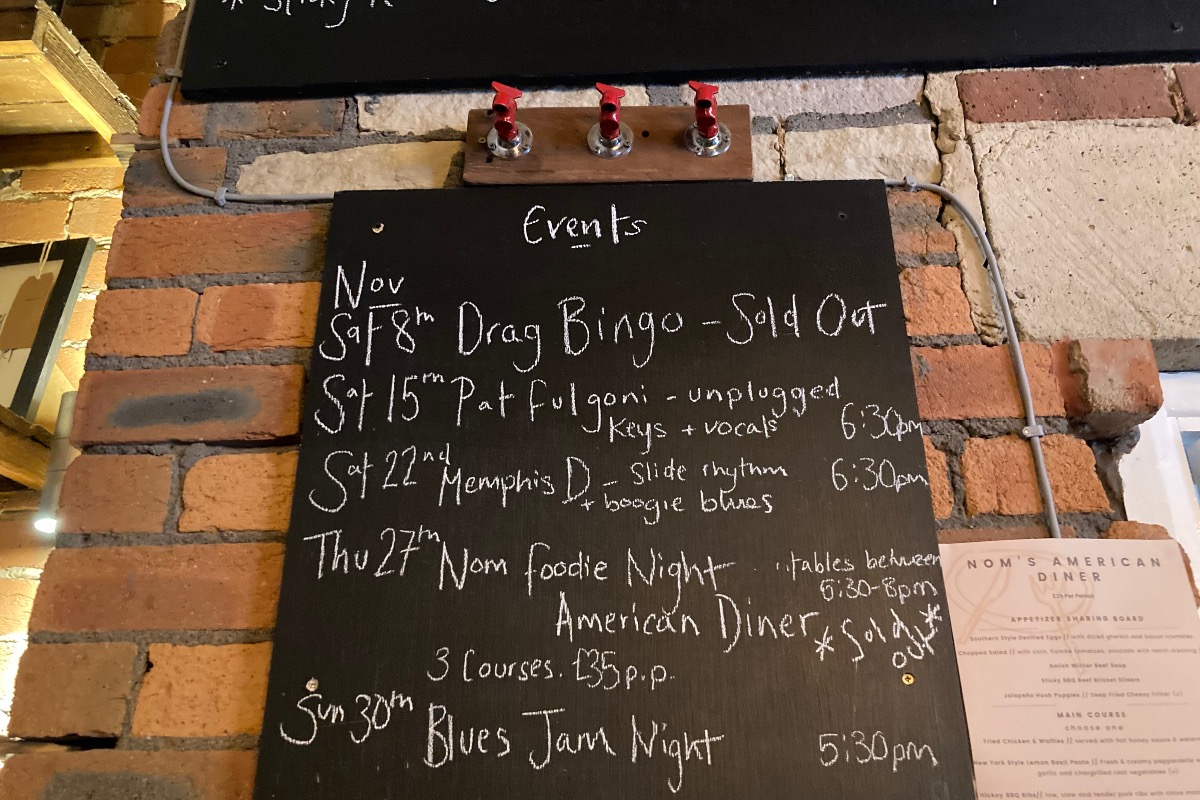 Events
Nov
Sat 8th Drag Bingo - Sold Out
Sat 15th Pat Fulgoni - unplugged
Keys + vocals 6:30pm
Sat 22nd Memphis D - Slide rhythm 6:30pm
+ boogie blues
Thu 27th Nom foodie Night tables between
5:30-8pm
American Diner * Sold out *
3 Courses. £35 p.p.
Sun 30th Blues Jam Night 5:30pm
NOM'S AMERICAN
DINER
Per Person
APPETIZER SHARING BOARD
Southern Style Devilled Eggs // with diced gherkin and bacon crumbles
Chopped Salad // with corn, tomatoes, avocado with ranch dressing
Amish Winter Beef Soup
Sticky BBQ Beef Brisket Sliders
Jalapeño Hush Puppies // Deep Fried Cheesy Fritter (v)
MAIN COURSE
choose one
Fried Chicken & Waffles // served with hot honey sauce &
New York Style Lemon Basil Pasta // Fresh & creamy
garlic and chargrilled root vegetables (v)
Hickory BBQ Ribs// low, slow and tender pork ribs with